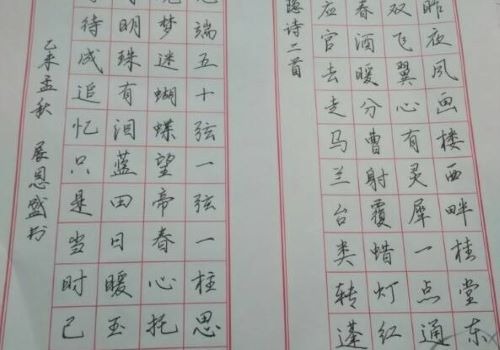 昨夜风画楼西畔桂堂东
双飞翼心有灵犀一点通
春酒暖分曹射覆蜡灯红
应官去走马兰台类转蓬
隐诗二首
端五十弦一弦一柱思
梦迷蝴蝶望帝春心托
明珠有泪蓝田日暖玉
待成追忆只是当时已
乙未孟秋 展恩盛书